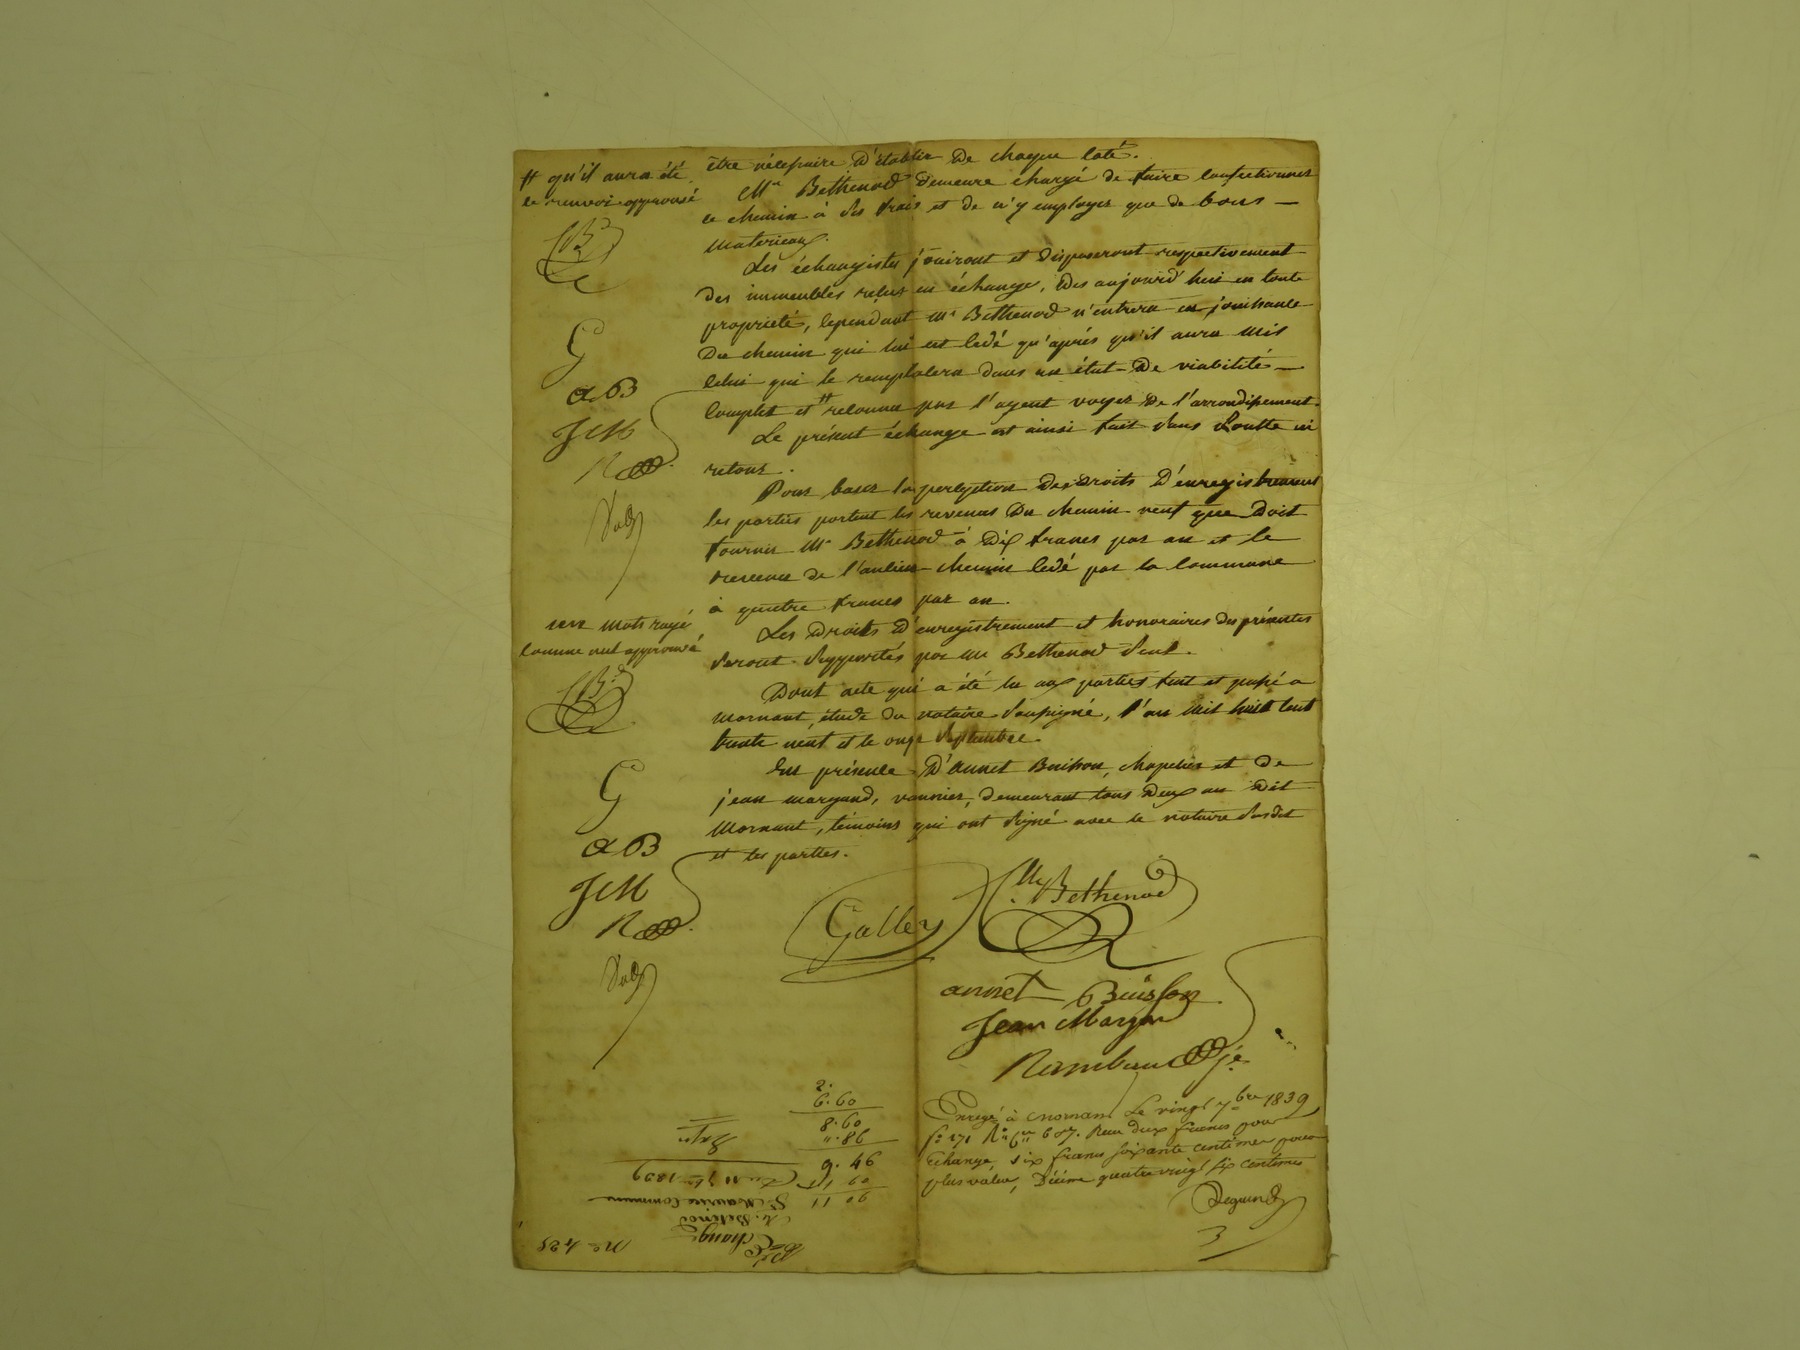 être nécessaire d'établir de chaque côté.
Mr Bethenod demeure chargé de faire confectionner
ce chemin à ses frais et de n'y employer que de bons —
materieaux.
Les échangistes jouiront et disposeront respectivement
des immeubles reçus en échange, dès aujourd'hui en toute
propriété, cependant Mr Bethenod n'entrera en jouissance
du chemin qui lui est cédé qu'après qu'il aura mis
celui qui le remplacera dans un état de viabilité —
complet et # reconnu par l'agent voyer de l'arrondissement.
Le présent échange est ainsi fait sans soulte ni
retour.
Pour baser la perception des droits d'enregistrement
les parties portent les revenus du chemin neuf que doit
fournir Mr Bethenod à dix francs par an et le
revenu de l'ancien chemin cédé par la commune
à quatre francs par an.
Les droits d'enregistrement et honoraires des présentes
seront supportés par Mr Bethenod seul.
Dont acte qui a été lu aux parties fait et passé a
mornant, étude du notaire soussigné, l'an mil huit cent
trente neuf et le onze septembre.
En présence d'annet Buisson, chapelier et de
jean margand, vannier, demeurant tous deux au dit
Mornant, témoins qui ont signé avec le notaire susdit
et les parties.
# qu'il aura été
ce renvoi approuvé
B
G
aB
JCM
R
mots rayé
comme nul approuvé
B
G
aB
JCM
R
Galley
Bethenod
annet Buisson
Jean Margan
Rambaud je
Enregé à Mornant Le vingt 7bre 1839
fo 171 Ro 687. Reçu deux francs pour
Echange, six francs soixante centimes pour
plus value, Décime quatre vingt six centimes
2.
6.60
8.60
".86
9.46
Du 11 7bre 1839
St Maurice Commune
M. Bétenod
Echange
No 425